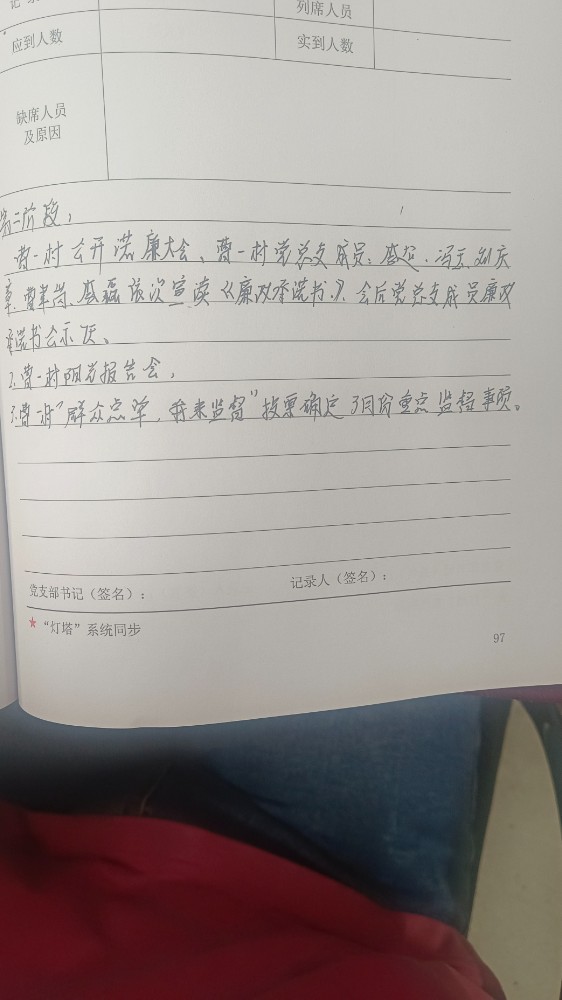 记
列席人员
应到人数
实到人数
缺席人员
及原因
第二阶段，
曹一村公开诺廉大会、曹一村党总支成员：
曹 宣读《廉政承诺书》、会后党总支成员廉政
承诺书公示
2.曹一村 报告会，
3.曹一村"群众点单，我来监督"投票确定3月份重点监督事项。
党支部书记（签名）：
记录人（签名）：
★"灯塔"系统同步
97